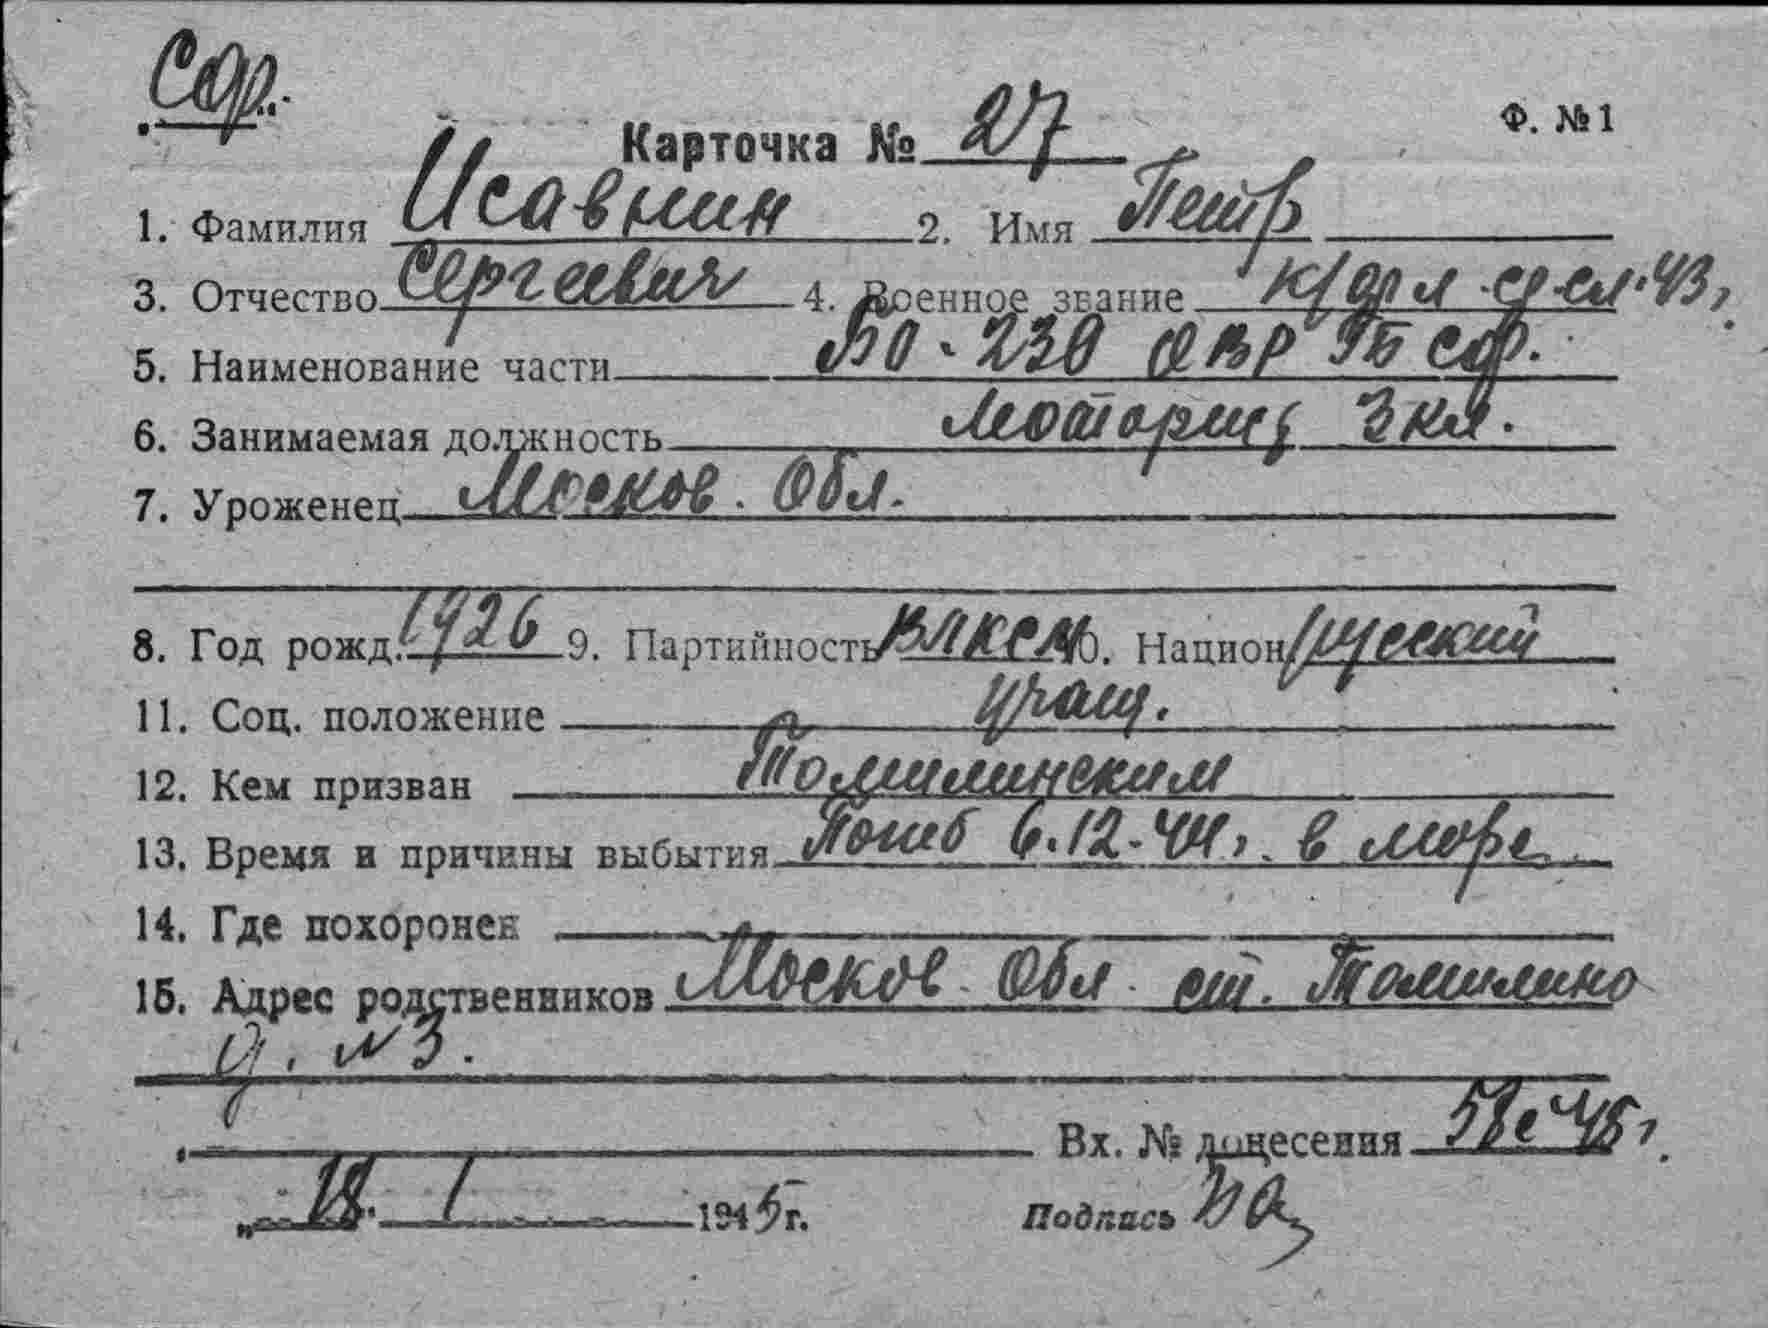 Сор.
Ф. №1
Карточка № 27
1. Фамилия Исавнин 2. Имя Петр
3. Отчество Сергеевич 4. Военное звание к/фл ср. сл. 43г.
5. Наименование части БО-230 ОВР ГБ СФ.
6. Занимаемая должность Моторист 3 кл.
7. Уроженец Москов. Обл.
8. Год рожд. 1926 9. Партийность ВЛКСМ 10. Национ. русский
11. Соц. положение учащ.
12. Кем призван Томилинским
13. Время и причины выбытия Погиб 6.12.44г. в море
14. Где похоронен
15. Адрес родственников Москов. Обл. ст. Томилино
д. №3.
Вх. № донесения 58с 45г.
„18. 1 1945г. Подпись